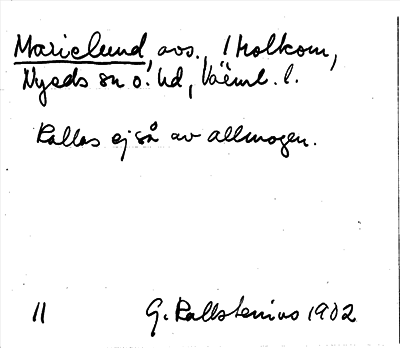 Marielund, avs., 1 Molkom,
Nyeds sn o. hd, Värml. l.
Kallas ej så av allmogen.
11 G. Kallstenius 1902